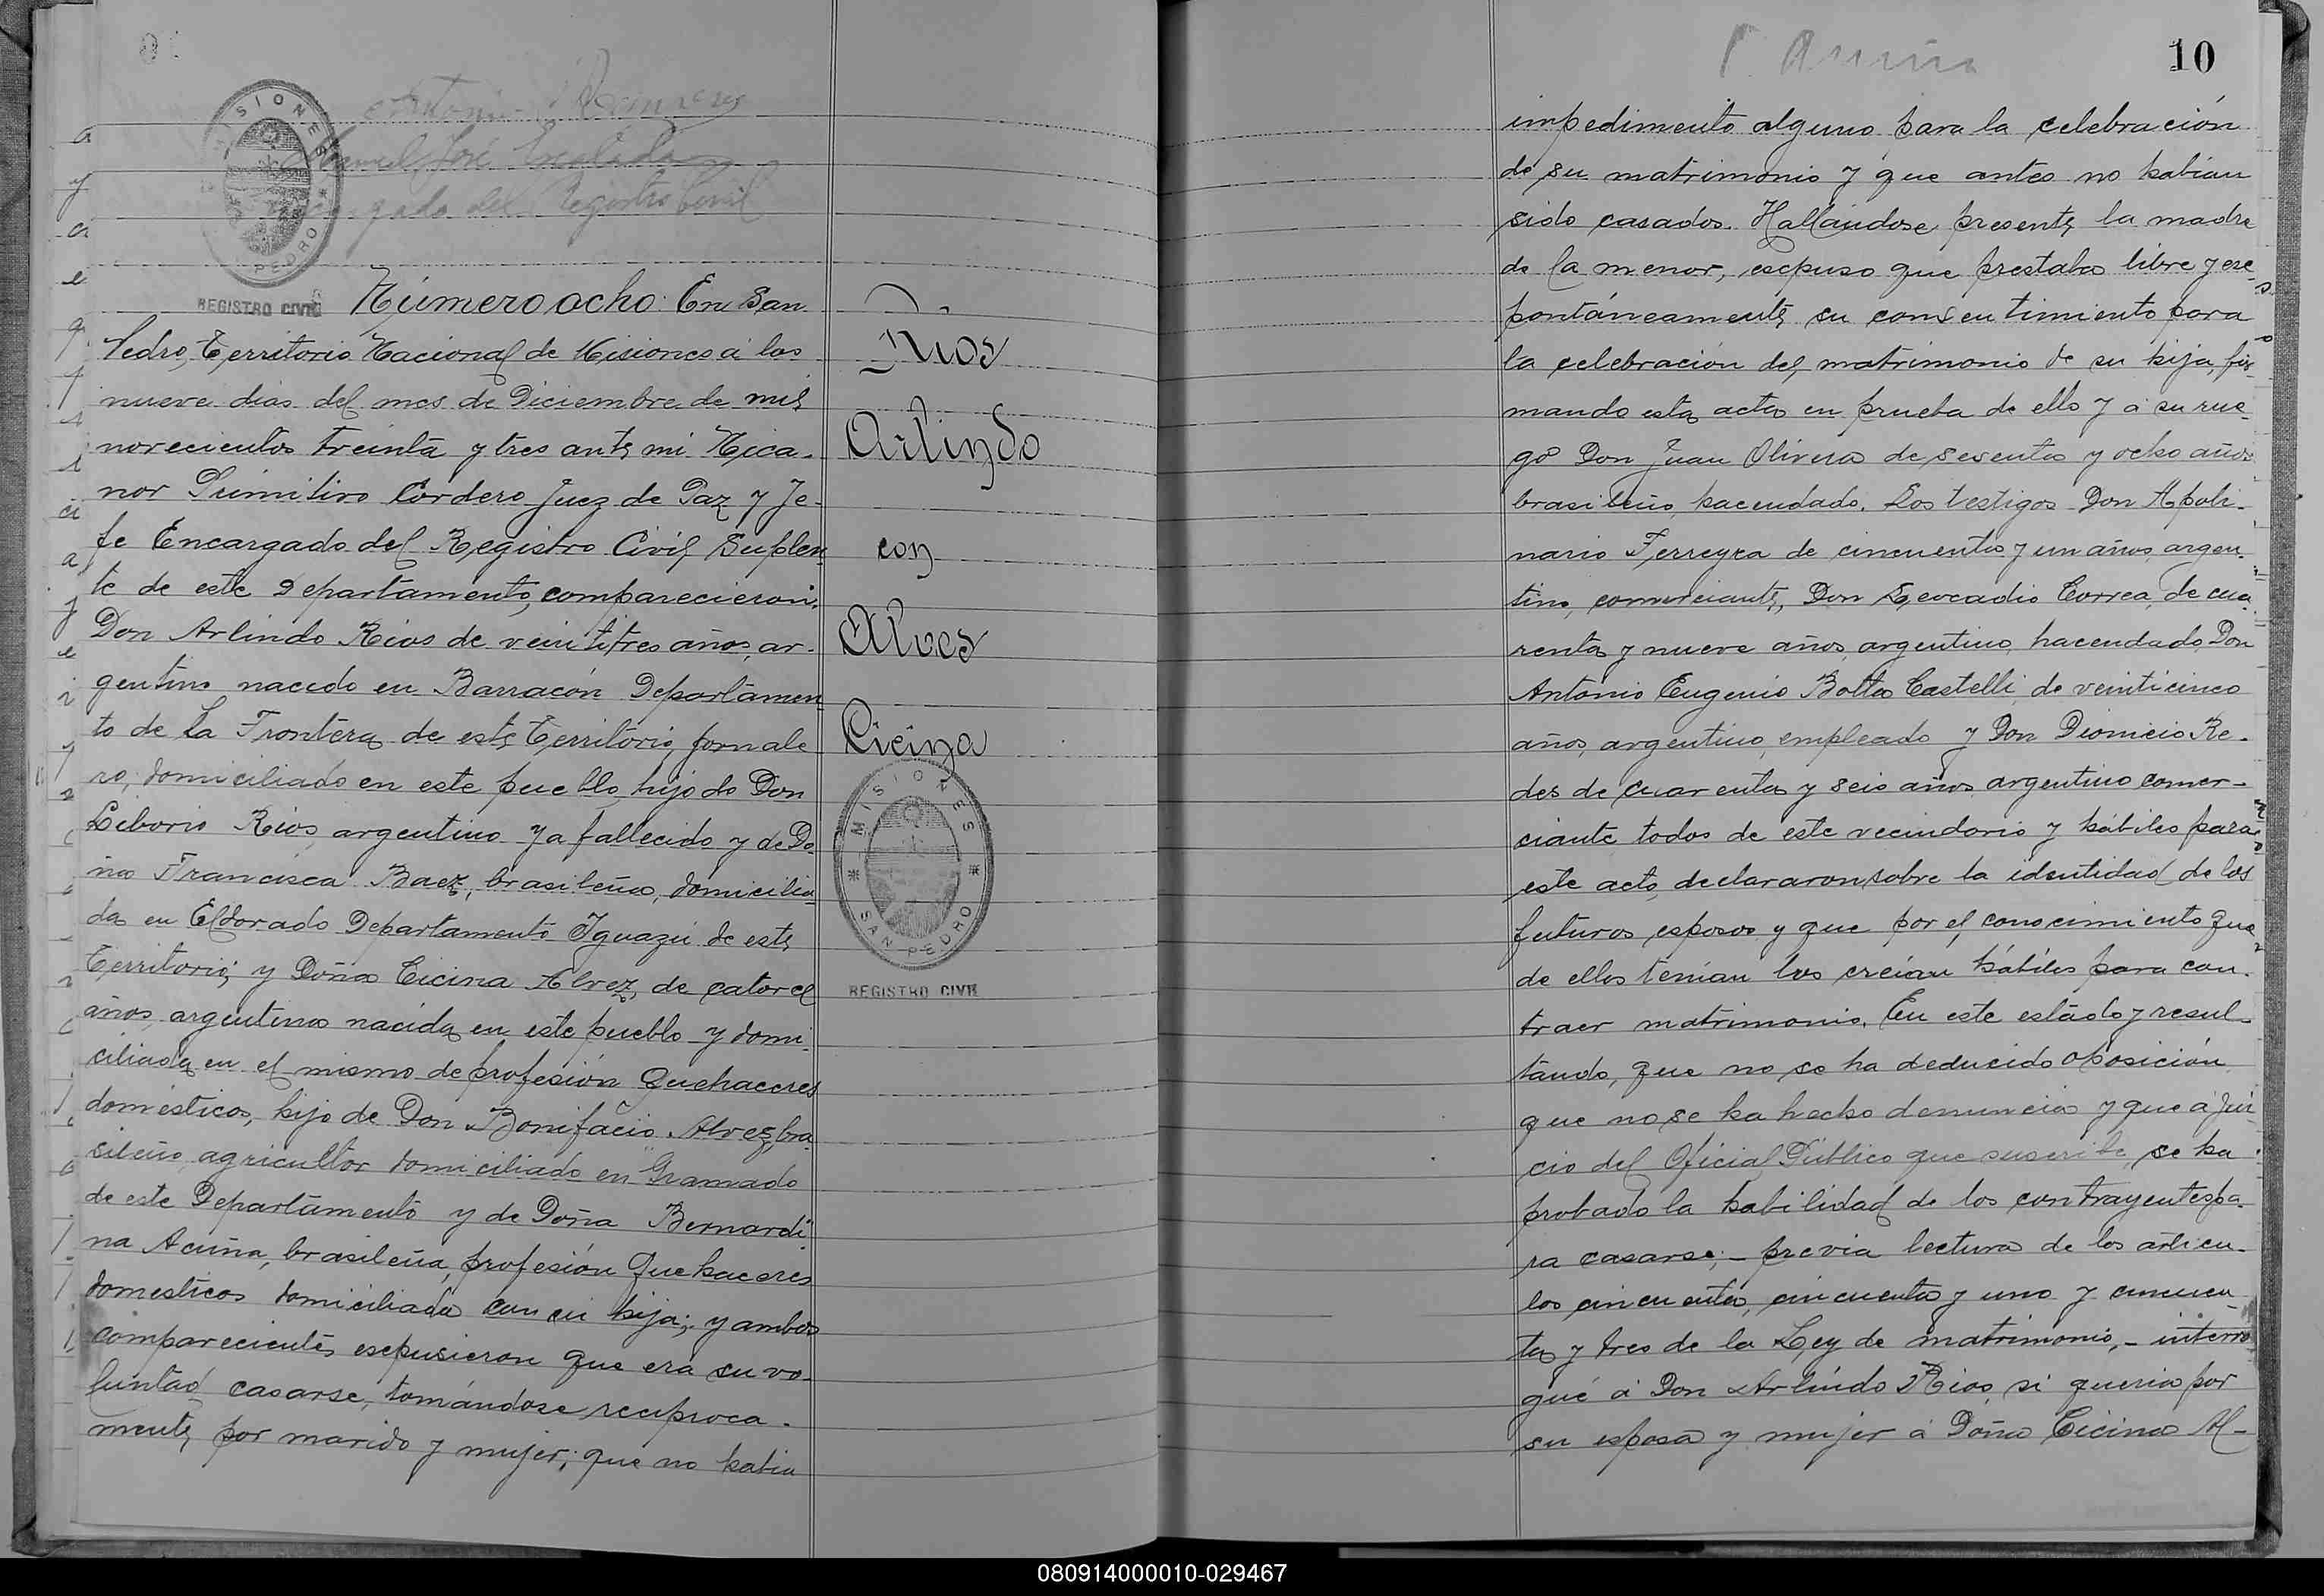 Manuel José Escalada
Registro Civil
MISIONES
SAN PEDRO
REGISTRO CIVIL
Número ocho: En San
Pedro, Territorio Nacional de Misiones á los
nueve dias del mes de Diciembre de mil
novecientos treinta y tres ante mi Nica-
nor Primitivo Cordero Juez de Paz y Je-
fe Encargado del Registro Civil Suplen-
te de este Departamento, comparecieron:
Don Arlindo Rios de veintitres años, ar-
gentino nacido en Barracón Departamen-
to de La Frontera de este Territorio, jornale-
ro, domiciliado en este pueblo, hijo de Don
Liborio Rios, argentino ya fallecido y de Do-
ña Francisca Baez, brasileña, domicilia-
da en Eldorado Departamento Iguazú de este
Territorio; y Doña Cicina Alvez, de catorce
años, argentina nacida en este pueblo y domi-
ciliada en el mismo de profesión Quehaceres
domésticos, hijo de Don Bonifacio Alvez, bra-
sileño, agricultor domiciliado en Gramado
de este Departamento y de Doña Bernardi-
na Acuña, brasileña, profesión Quehaceres
domesticos domiciliada con su hija; y ambos
comparecientes escpusieron que era su vo-
luntad casarse, tomándose reciproca-
mente por marido y mujer; que no habia
Rios
Arlindo
con
Alves
Cicina
MISIONES
SAN PEDRO
REGISTRO CIVIL
10
impedimento alguno para la celebración
de su matrimonio y que antes no habian
sido casados. Hallándose presente la madre
de la menor, escpuso que prestaba libre y es-
pontáneamente su consentimiento para
la celebración del matrimonio de su hija, fir-
mando esta acta en prueba de ello y á su rue-
go Don Juan Olivera de sesenta y ocho años
brasileño, hacendado. Los testigos Don Apoli-
nario Ferreyra de cincuenta y un años, argen-
tino, comerciante, Don Leocadio Correa, de cua-
renta y nueve años, argentino, hacendado, Don
Antonio Eugenio Botta Castelli, de veinticinco
años, argentino, empleado y Don Dionicio Re-
des de cuarenta y seis años argentino comer-
ciante todos de este vecindario y hábiles para
este acto, declararon sobre la identidad de los
futuros esposos y que por el conocimiento que
de ellos tenian los creian hábiles para con-
traer matrimonio. En este estado y resul-
tando, que no se ha deducido oposición
que no se ha hecho denuncia y que a jui-
cio del Oficial Público que suscribe, se ha
probado la habilidad de los contrayentes pa-
ra casarse; - previa lectura de los articu-
los cincuenta, cincuenta y uno y cincuen-
ta y tres de la Ley de matrimonio, - interro-
gué á Don Arlindo Rios, si queria por
su esposa y mujer á Doña Cicina Al-
080914000010-029467